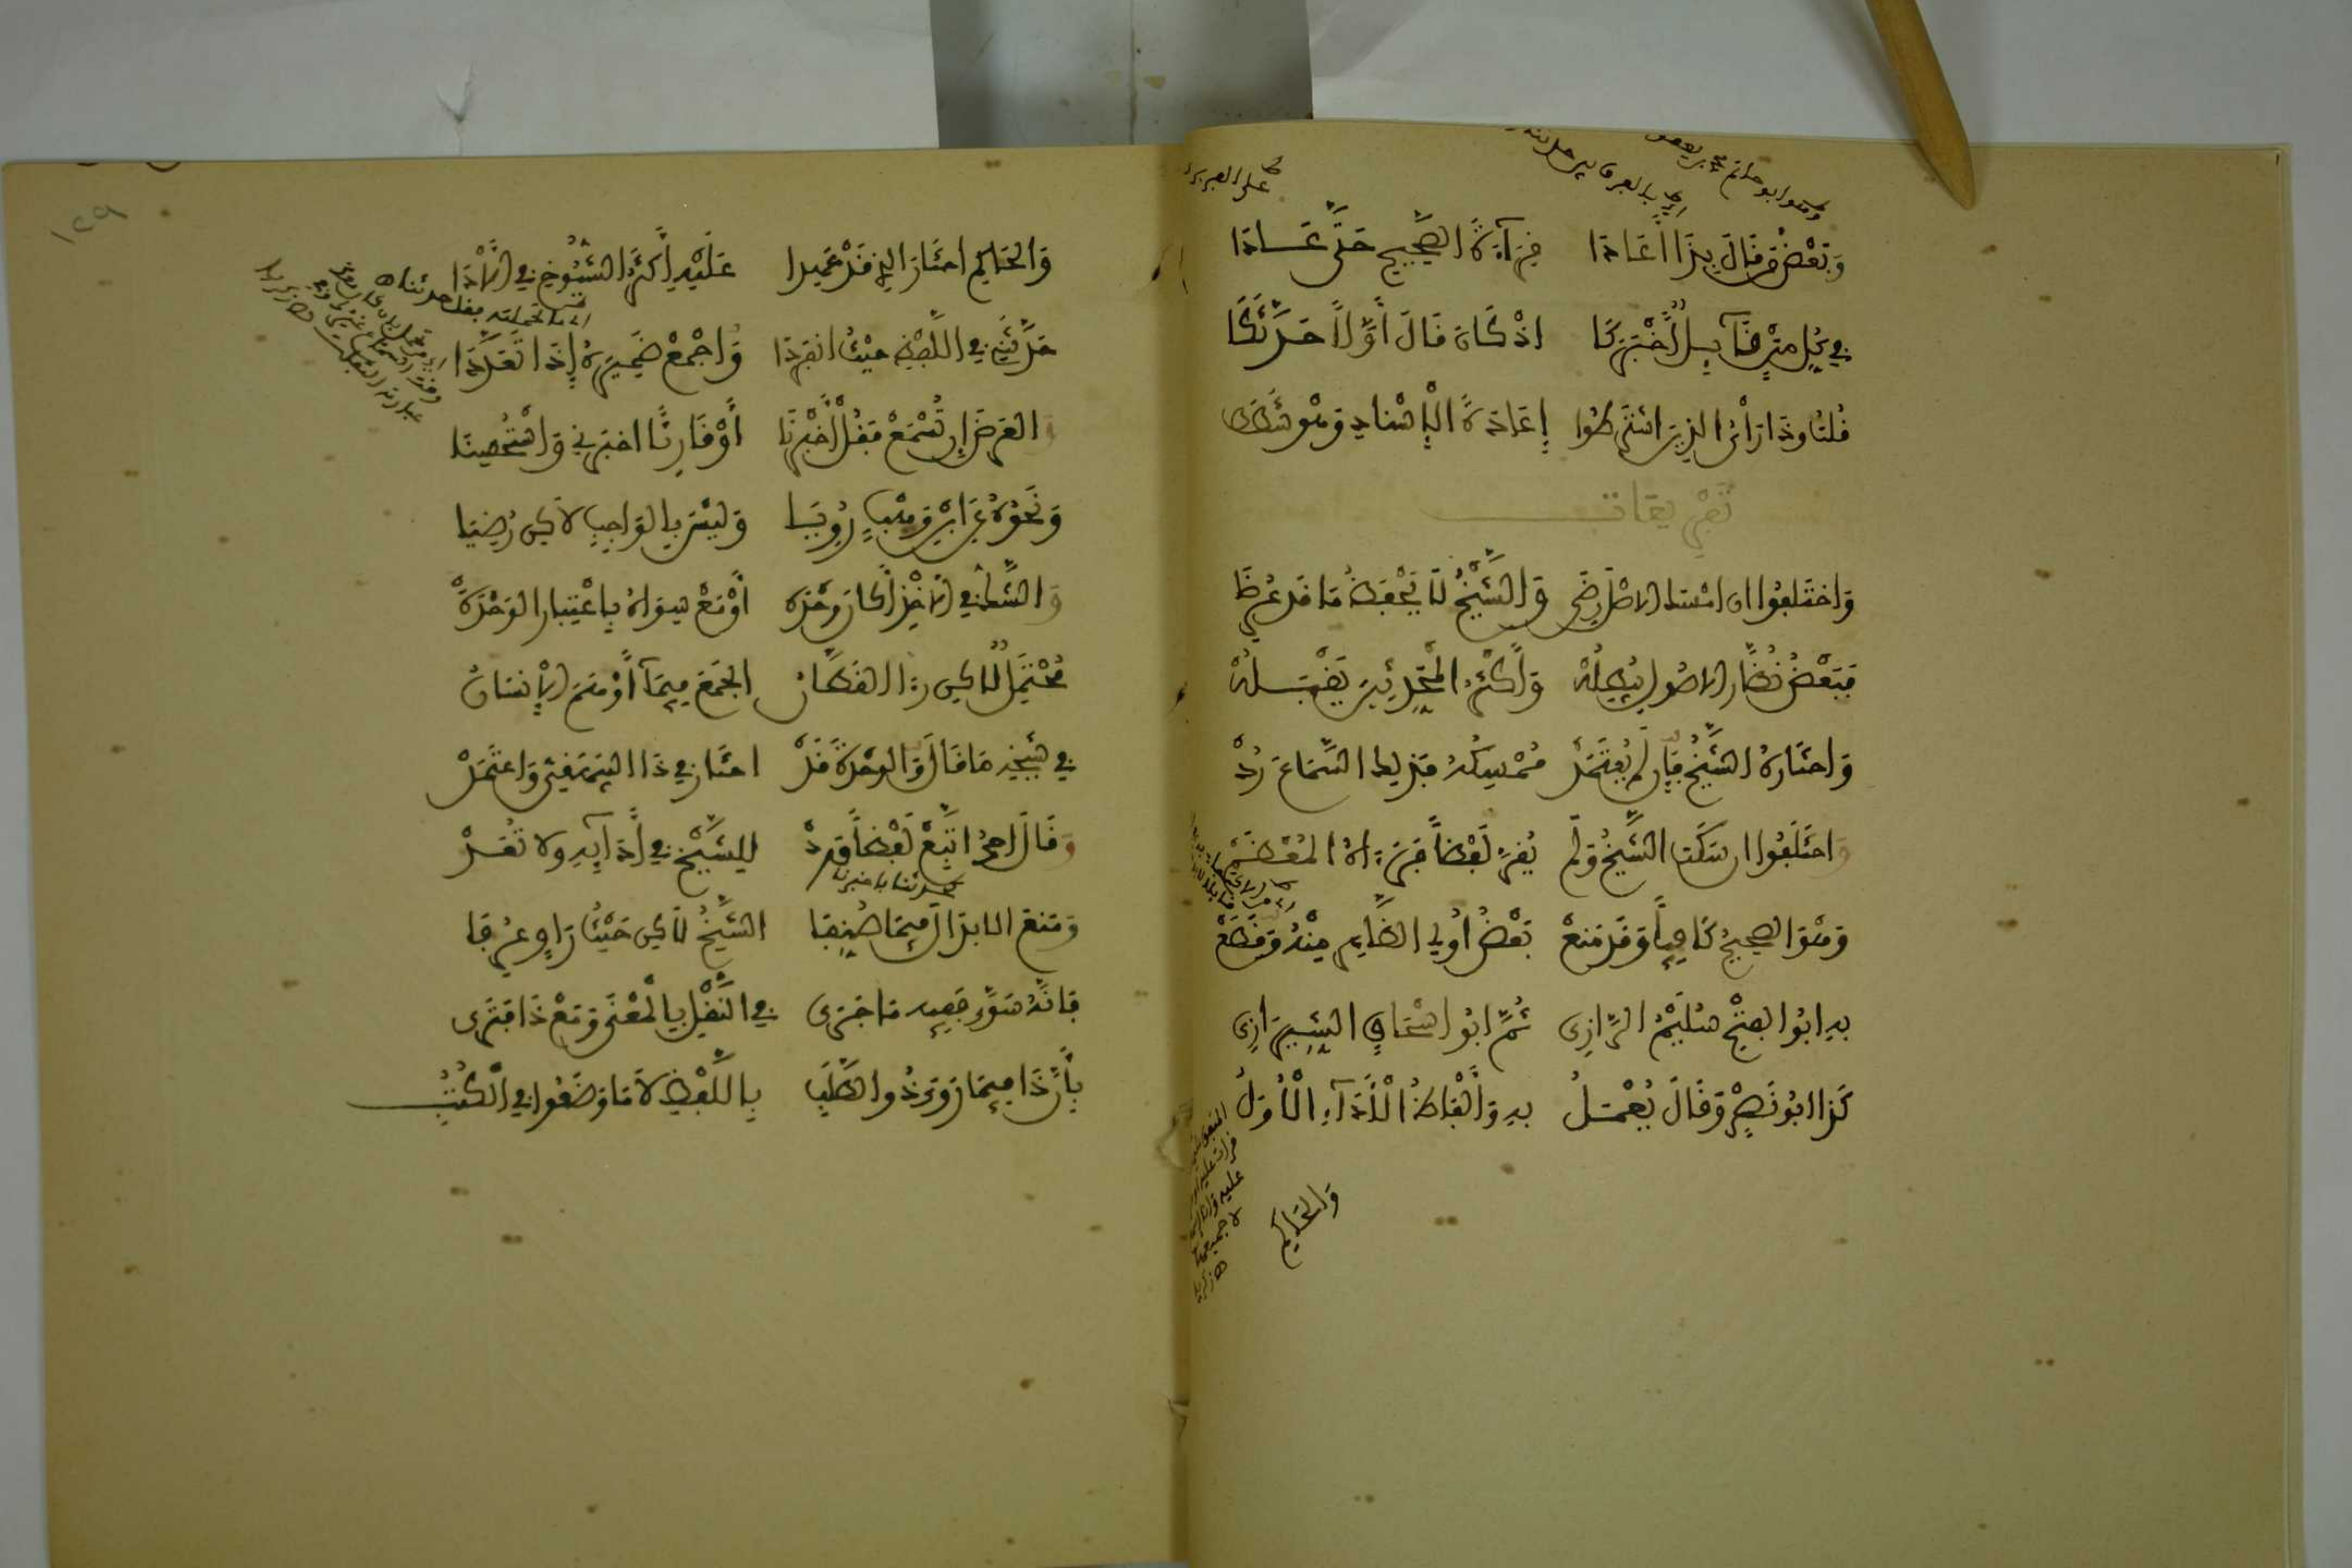 وَبَعْضُهُمْ قَالَ بِذَا أَعَادَا قِرَاءَةَ الصَّحِيحِ حَتَّى عَادَا
فِي كُلِّ مَتْنٍ قَائِلًا أَخْبَرَكَا إِذْ كَانَ قَالَ أَوَّلًا حَدَّثَكَا
قُلْتُ وَذَا رَأْيُ الَّذِينَ اشْتَرَطُوا إِعَادَةَ الْإِسْنَادِ وَهْوَ شَطَطُ
تَفْرِيعَات
وَاخْتَلَفُوا إِنْ أَمْسَكَ الْأَصْلَ رِضَى وَالشَّيْخُ لَا يَحْفَظُ مَا قَدْ عُرِضَا
فَبَعْضُ نُظَّارِ الْأُصُولِ يُبْطِلُهْ وَأَكْثَرُ الْمُحَدِّثِينَ يَقْبَلُهْ
وَاخْتَارَهُ الشَّيْخُ فَإِنْ لَمْ يُعْتَمَدْ مُمْسِكُهُ فَذَلِكَ السَّمَاعُ رَدْ
وَاخْتَلَفُوا إِنْ سَكَتَ الشَّيْخُ وَلَمْ يُقِرَّ لَفْظًا فَرَآهُ الْمُعْظَمْ
وَهْوَ الصَّحِيحُ كَافِيًا وَقَدْ مَنَعْ بَعْضُ أُولِي الظَّاهِرِ مِنْهُ وَقَطَعْ
بِهِ أَبُو الْفَتْحِ سُلَيْمُ الرَّازِي ثُمَّ أَبُو إِسْحَاقٍ الشِّيرَازِي
كَذَا أَبُو نَصْرٍ وَقَالَ يُعْمَلُ بِهِ وَأَلْفَاظُ الْأَدَاءِ الْأُوَلُ
وَالْحَاكِمُ
وَالْحَاكِمُ اخْتَارَ الَّذِي قَدْ عَهِدَا عَلَيْهِ أَكْثَرَ الشُّيُوخِ فِي الْأَدَا
حَدَّثَنِي فِي اللَّفْظِ حَيْثُ انْفَرَدَا وَاجْمَعْ ضَمِيرَهُ إِذَا تَعَدَّدَا
وَالْعَرْضِ إِنْ تَسْمَعْ فَقُلْ أَخْبَرَنَا أَوْ قَارِئًا أَخْبَرَنِي وَاسْتُحْسِنَا
وَنَحْوُهُ عَنِ ابْنِ وَهْبٍ رُوِيَا وَلَيْسَ بِالْوَاجِبِ لَكِنْ رُضِيَا
وَالشَّكُّ فِي الْأَخْذِ أَكَانَ وَحْدَهُ أَوْ مَعْ سِوَاهُ بِاعْتِبَارِ الْوَحْدَهْ
مُحْتَمَلٌ لَكِنْ رَأَى الْقَطَّانُ الْجَمْعَ فِيمَا أَوْهَمَ الْإِنْسَانُ
فِي شَيْخِهِ مَا قَالَ وَالْوَحْدَةَ قَدْ اخْتَارَ فِي ذَا الْبَيْهَقِيُّ وَاعْتَمَدْ
وَقَالَ أَحْمَدُ اتَّبِعْ لَفْظًا وَرَدْ لِلشَّيْخِ فِي أَدَائِهِ وَلَا تَعَدْ
وَمَنَعَ الْإِبْدَالَ فِيمَا صُنِّفَا الشَّيْخُ لَكِنْ حَيْثُ رَاوٍ عُرِفَا
بِأَنَّهُ سَوَّى فَفِيهِ مَا جَرَى فِي النَّقْلِ بِالْمَعْنَى وَمَعْ ذَا فَيَرَى
بِأَنَّ ذَا فِيمَا رَوَى ذُو الطَّلَبِ بِاللَّفْظِ لَا مَا وَضَعُوا فِي الْكُتُبِ